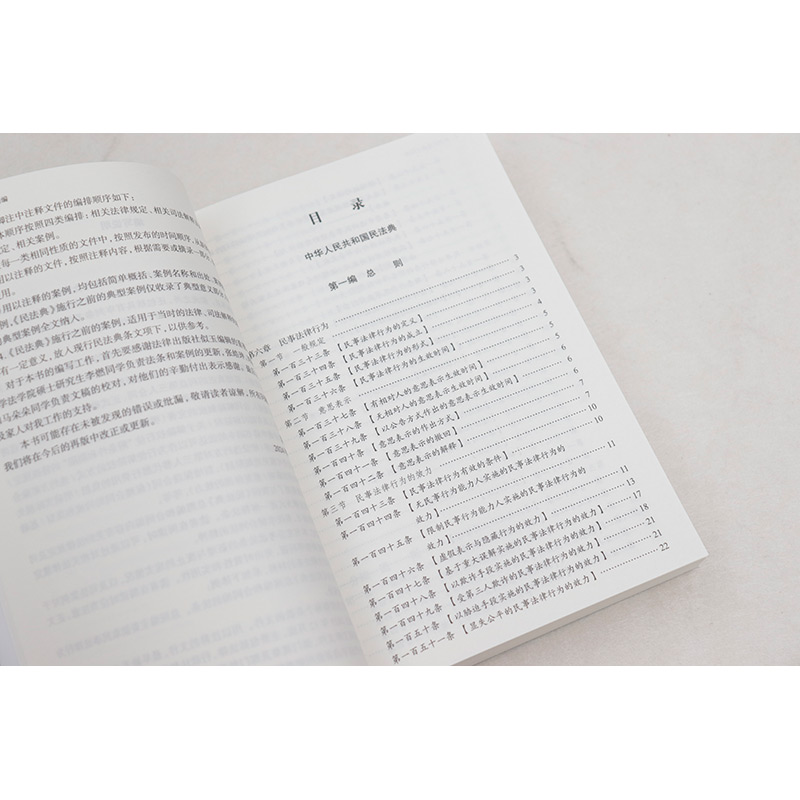 编
脚注中注释文件的编排顺序如下：
本顺序按照四类编排：相关法律规定、相关司法解释
定、相关案例。
每一类相同性质的文件中，按照发布的时间顺序，从
用以注释的文件，按照注释内容，根据需要或摘录一部
使用。
用以注释的案例，均包括简单概括、案例名称和出处。
例，《民法典》施行之前的典型案例仅收录了典型意义部分
典型案例全文纳入。
4.《民法典》施行之前的案例，适用于当时的法律、司法解
有一定意义，放入现行民法典条文项下，以供参考。
对于本书的编写工作，首先要感谢法律出版社似玉编辑的
学法学院硕士研究生李燃同学负责法条和案例的更新，张
马朵朵同学负责文稿的校对，对他们的辛勤付出表示感谢，
家人对我工作的支持。
本书可能存在未被发现的错误或纰漏，敬请读者谅解，
我们将在今后的再版中改正或更新。
202
目 录
中华人民共和国民法典
第一编 总 则
第六章 民事法律行为 3
第一节 一般规定 3
第一百三十三条 【民事法律行为的定义】 3
第一百三十四条 【民事法律行为的成立】 4
第一百三十五条 【民事法律行为的形式】 4
第一百三十六条 【民事法律行为的生效时间】 5
第二节 意思表示 6
第一百三十七条 【有相对人的意思表示生效时间】 6
第一百三十八条 【无相对人的意思表示生效时间】 6
第一百三十九条 【以公告方式作出的意思表示生效时间】 7
第一百四十条 【意思表示的作出方式】 7
第一百四十一条 【意思表示的撤回】 10
第一百四十二条 【意思表示的解释】 10
第三节 民事法律行为的效力
第一百四十三条 【民事法律行为有效的条件】 11
第一百四十四条 【无民事行为能力人实施的民事法律行为的
效力】 11
第一百四十五条 【限制民事行为能力人实施的民事法律行为的
效力】 13
第一百四十六条 【虚假表示与隐藏行为的效力】 17
第一百四十七条 【基于重大误解实施的民事法律行为的效力】 18
第一百四十八条 【以欺诈手段实施的民事法律行为的效力】 21
第一百四十九条 【受第三人欺诈的民事法律行为的效力】 21
第一百五十条 【以胁迫手段实施的民事法律行为的效力】 22
第一百五十一条 【显失公平的民事法律行为的效力】